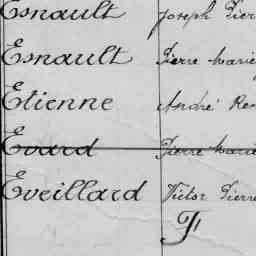 Esnault Joseph Pier
Esnault Pierre Marie
Etienne André Ren
Evard Pierre Marie
Eveillard Victor Pierre
F